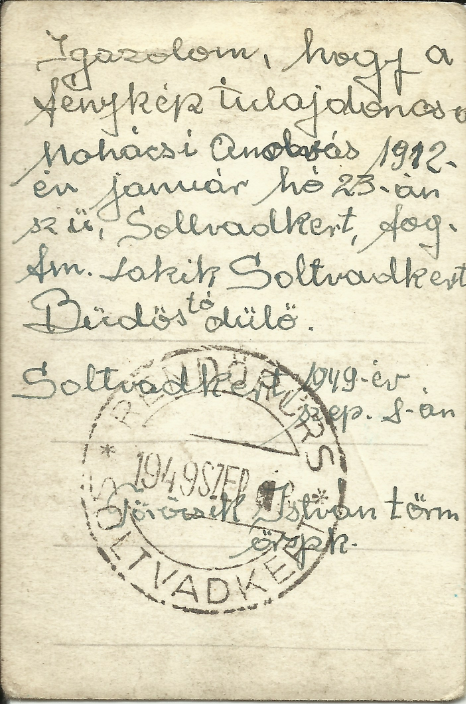 Igazolom, hogy a
fénykép tulajdonosa
Mohácsi András 1912-
év január hó 23-án
szü, Soltvadkert, fog.
fm. Lakik Soltvadkert
Büdöstó dülő.
Soltvadkert 1949-év
szep. 8-án
RENDŐRŐRS
1949 SZEP
István törm
őrspk.
SOLTVADKERT